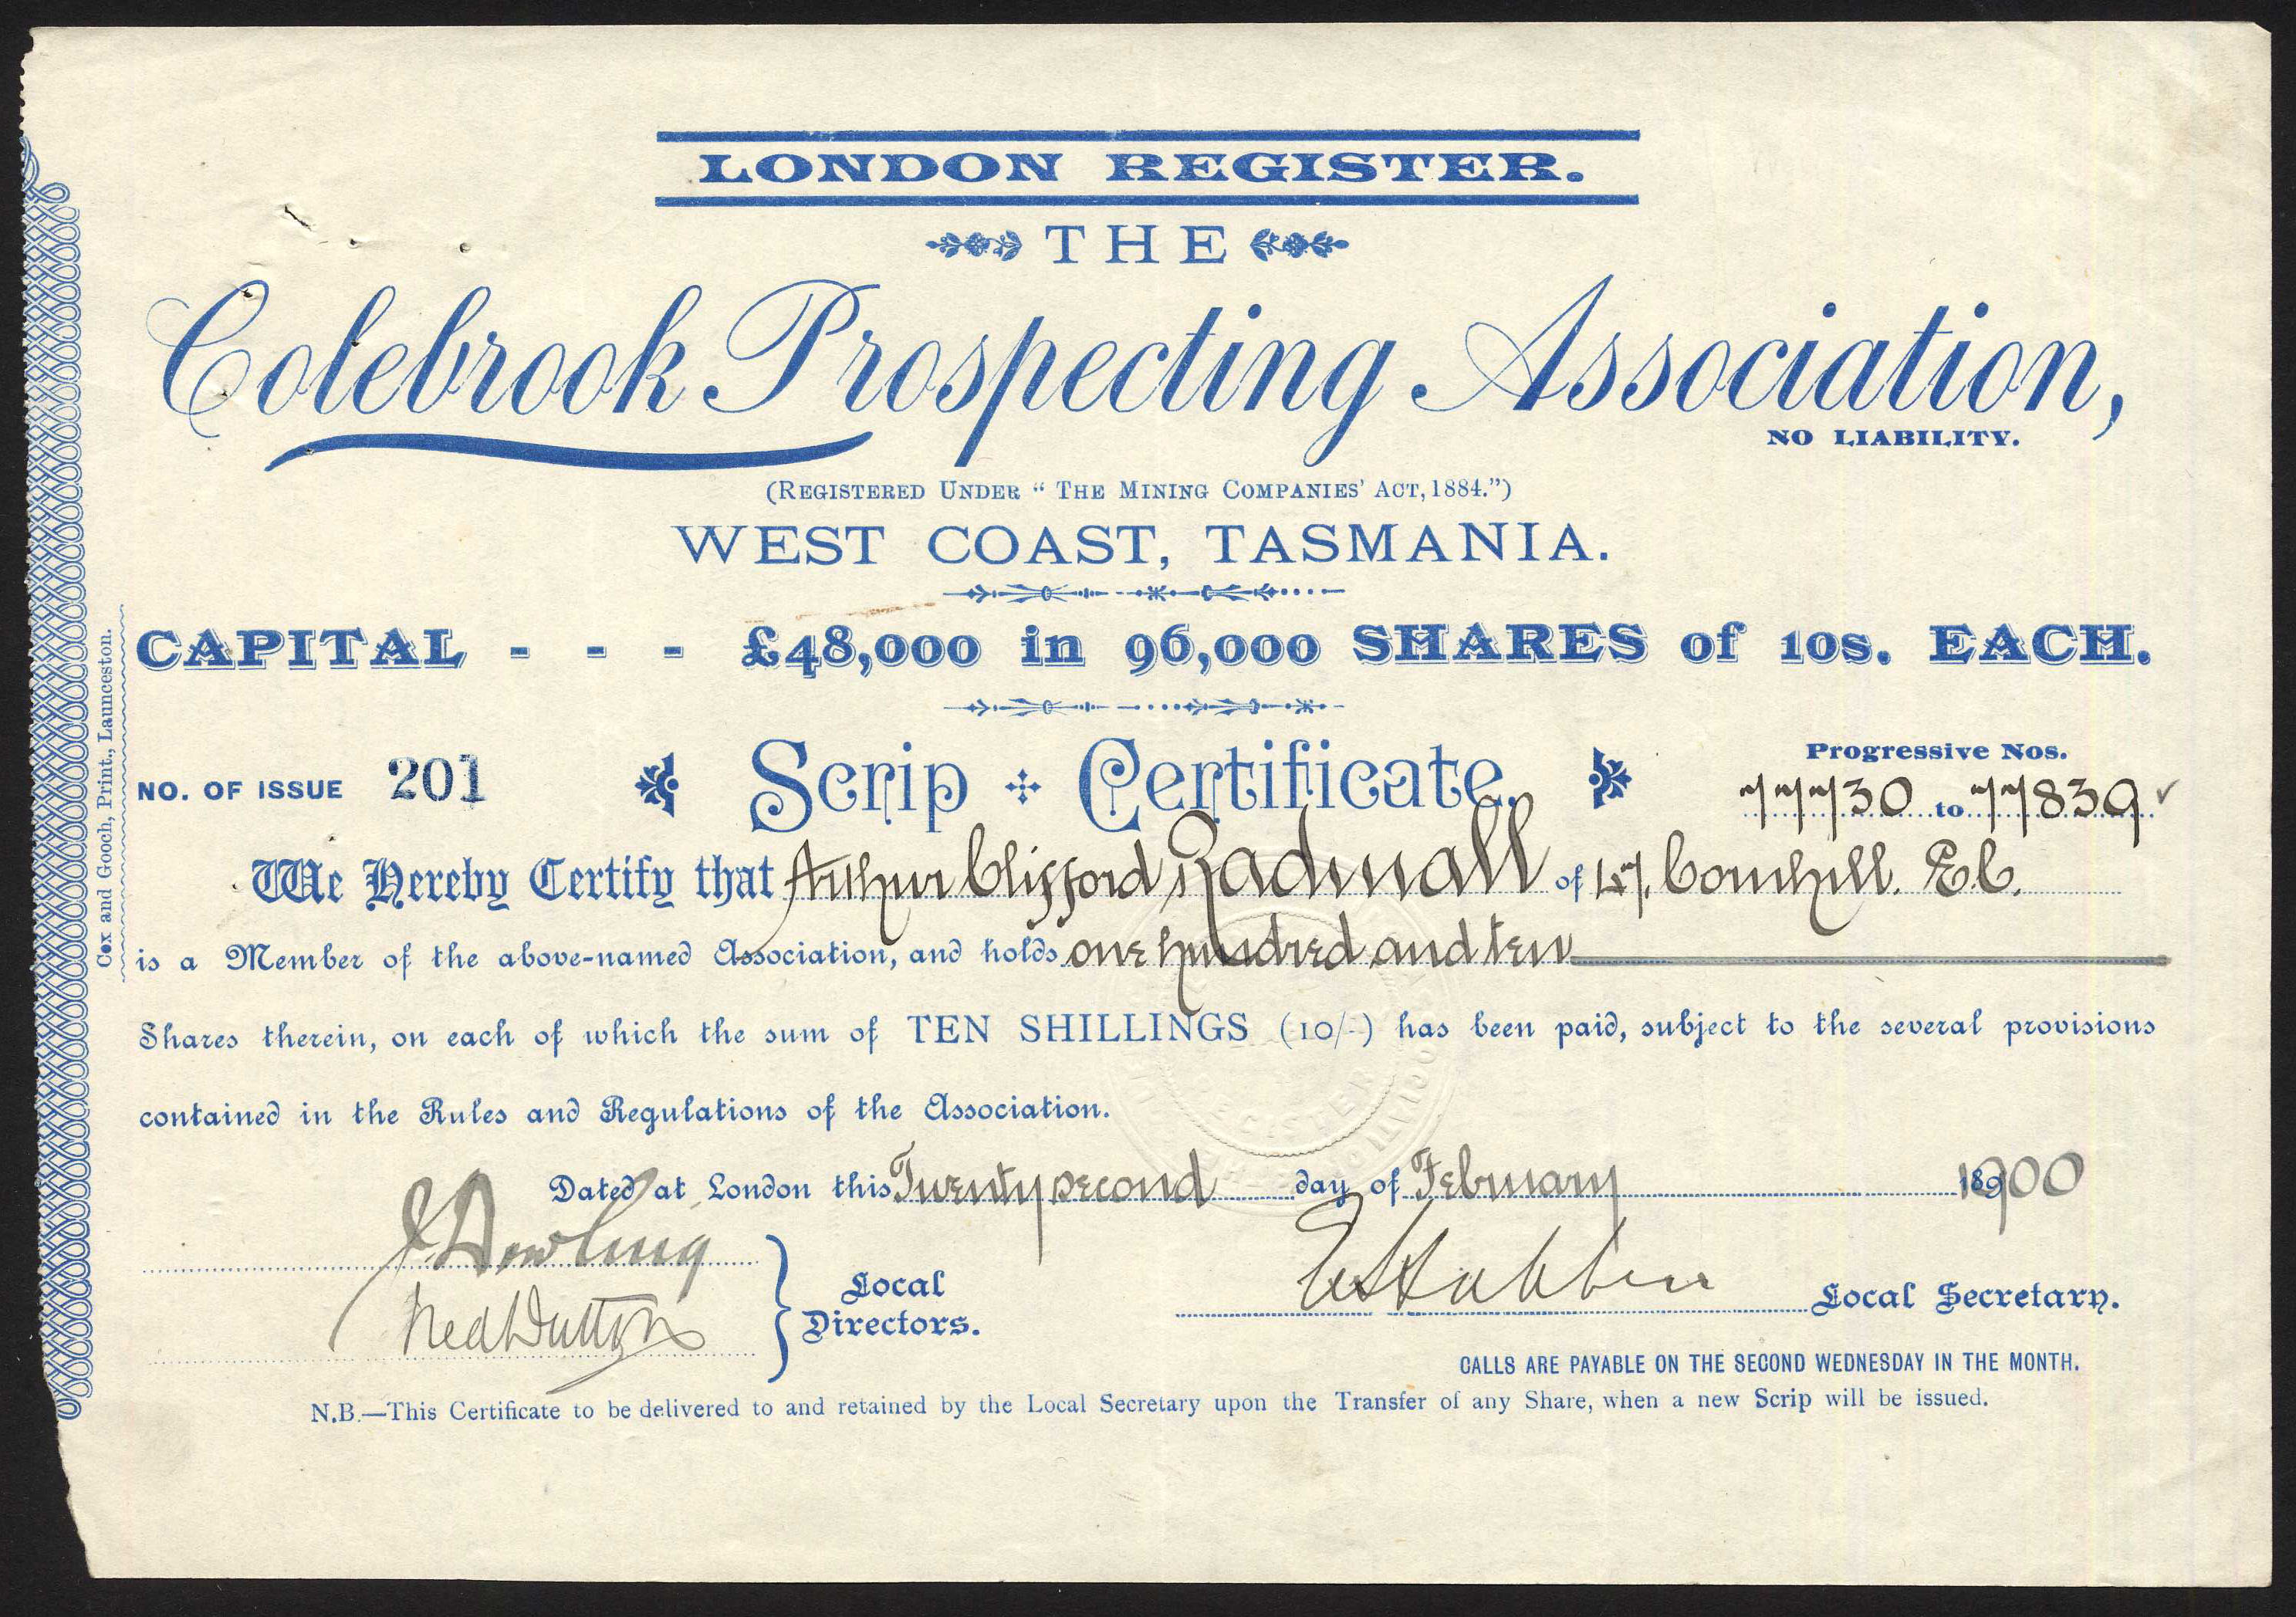 LONDON REGISTER.
THE
Colebrook Prospecting Association,
NO LIABILITY.
(REGISTERED UNDER "THE MINING COMPANIES' ACT, 1884.")
WEST COAST, TASMANIA.
CAPITAL - - - £48,000 in 96,000 SHARES of 10s. EACH.
NO. OF ISSUE 201 Scrip Certificate. Progressive Nos.
77730 to 77839
We Hereby Certify that Arthur Clifford Radmall of 57. Cornhill. E.C.
is a Member of the above-named Association, and holds one hundred and ten
Shares therein, on each of which the sum of TEN SHILLINGS (10/-) has been paid, subject to the several provisions
contained in the Rules and Regulations of the Association.
Dated at London this Twenty second day of February 1900
J. Dowling
Ned Dutton
Local
Directors.
Local Secretary.
CALLS ARE PAYABLE ON THE SECOND WEDNESDAY IN THE MONTH.
N.B.—This Certificate to be delivered to and retained by the Local Secretary upon the Transfer of any Share, when a new Scrip will be issued.
Cox and Gooch, Print., Launceston.